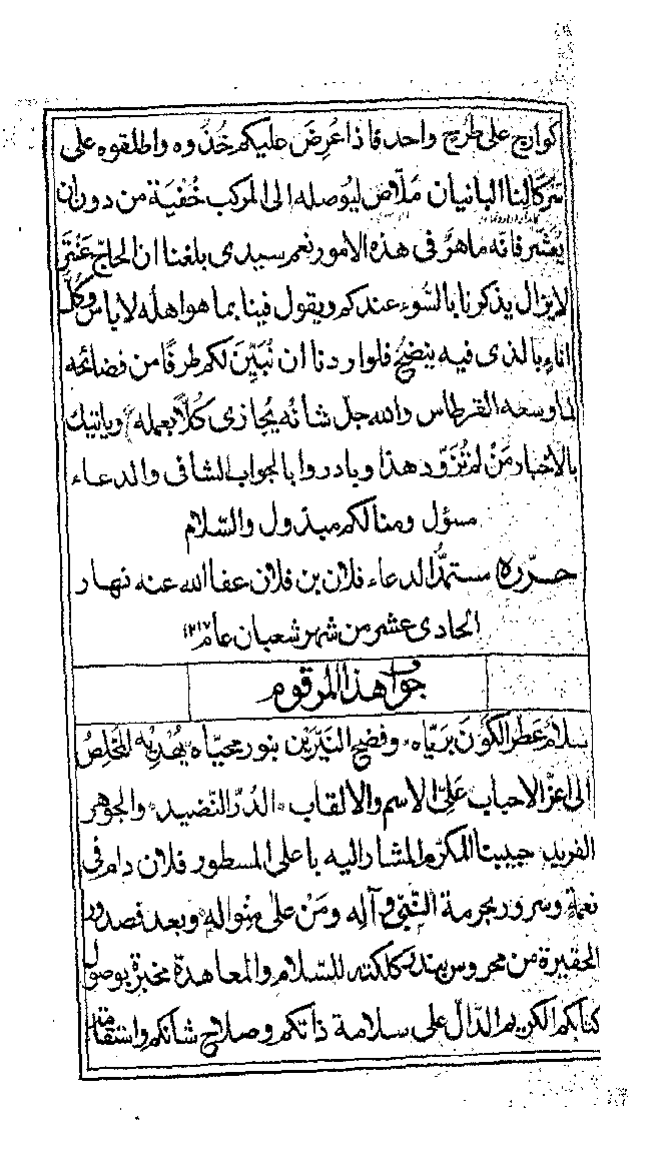 كوارج على طريح واحد فاذا عُرِضَ عليكم خُذوه واطلقوه على
سركالنا البانيان مَلّاص ليُوصله الى المركب خُفيَة من دون ان
يعَشر فانّه ماهرٌ فى هذه الامور نعم سيدى بلغنا ان الحاجّ عَنتر
لا يزال يذكرنا بالسُّوء عندكم ويقول فينا بما هو اهله لا باس وكلّ
اناءٍ بالذى فيه ينضحُ فلو اردنا ان نُبَيِّنَ لكم طرفًا من فضائحه
لما وسعه القرطاس والله جل شانُه يُجازى كُلًّا بعمله ويانيك
بالاخبار مَنْ لم تُزَوِّد هذا وبادروا بالجواب الشافى والدعاء
مسؤل ومنالكم مبذول والسّلام
حرّره مستمدُّ الدعاء فلان بن فلان عفا الله عنه نهار
الحادى عشر من شهر شعبان عام ١٢١٧
جواب هذا المرقوم
سلامٌ عَطر الكَونَ بَريّاه، وفضح النَيّرَين بنور محيّاه يُهديه المخلِصُ
الى اعزّ الاحباب عَلِىّ الاسم والالقاب الدُرّ النّضيد والجوهر
الفريد حبيبنا المكرّم المشار اليه باعلى المسطور فلان دام فى
نعمةٍ وسرور بحرمة النّبىّ وآلِه ومَنْ على منوالِه وبعد فصدور
الحقيرة من محروس بندر كلكته للسّلام والمعاهدة مخبرةً بوصول
كتابكم الكريم الدّالّ على سلامة ذاتكم وصلاح شانكم واستقامة